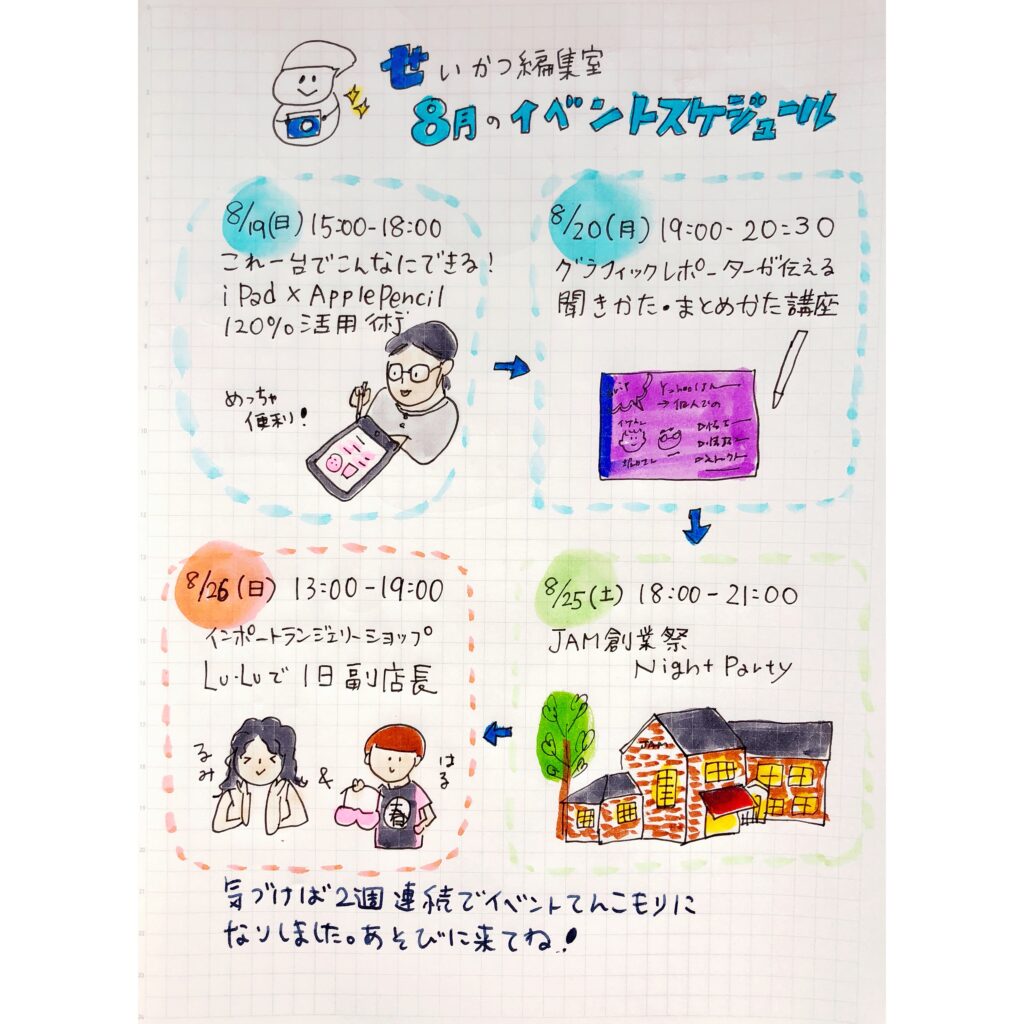 せいかつ編集室
8月のイベントスケジュール
8/19(日) 15:00-18:00
これ一台でこんなにできる!
iPad×ApplePencil
120%活用術
めっちゃ
便利!
8/20(月) 19:00-20:30
グラフィックレポーターが伝える
聞きかた・まとめかた講座
8/25(土) 18:00-21:00
JAM創業祭
Night Party
JAM
8/26(日) 13:00-19:00
インポートランジェリーショップ
Lu・Luで1日副店長
るみ
&
はる
春
気づけば2週連続でイベントてんこもりに
なりしました。あそびに来てね!